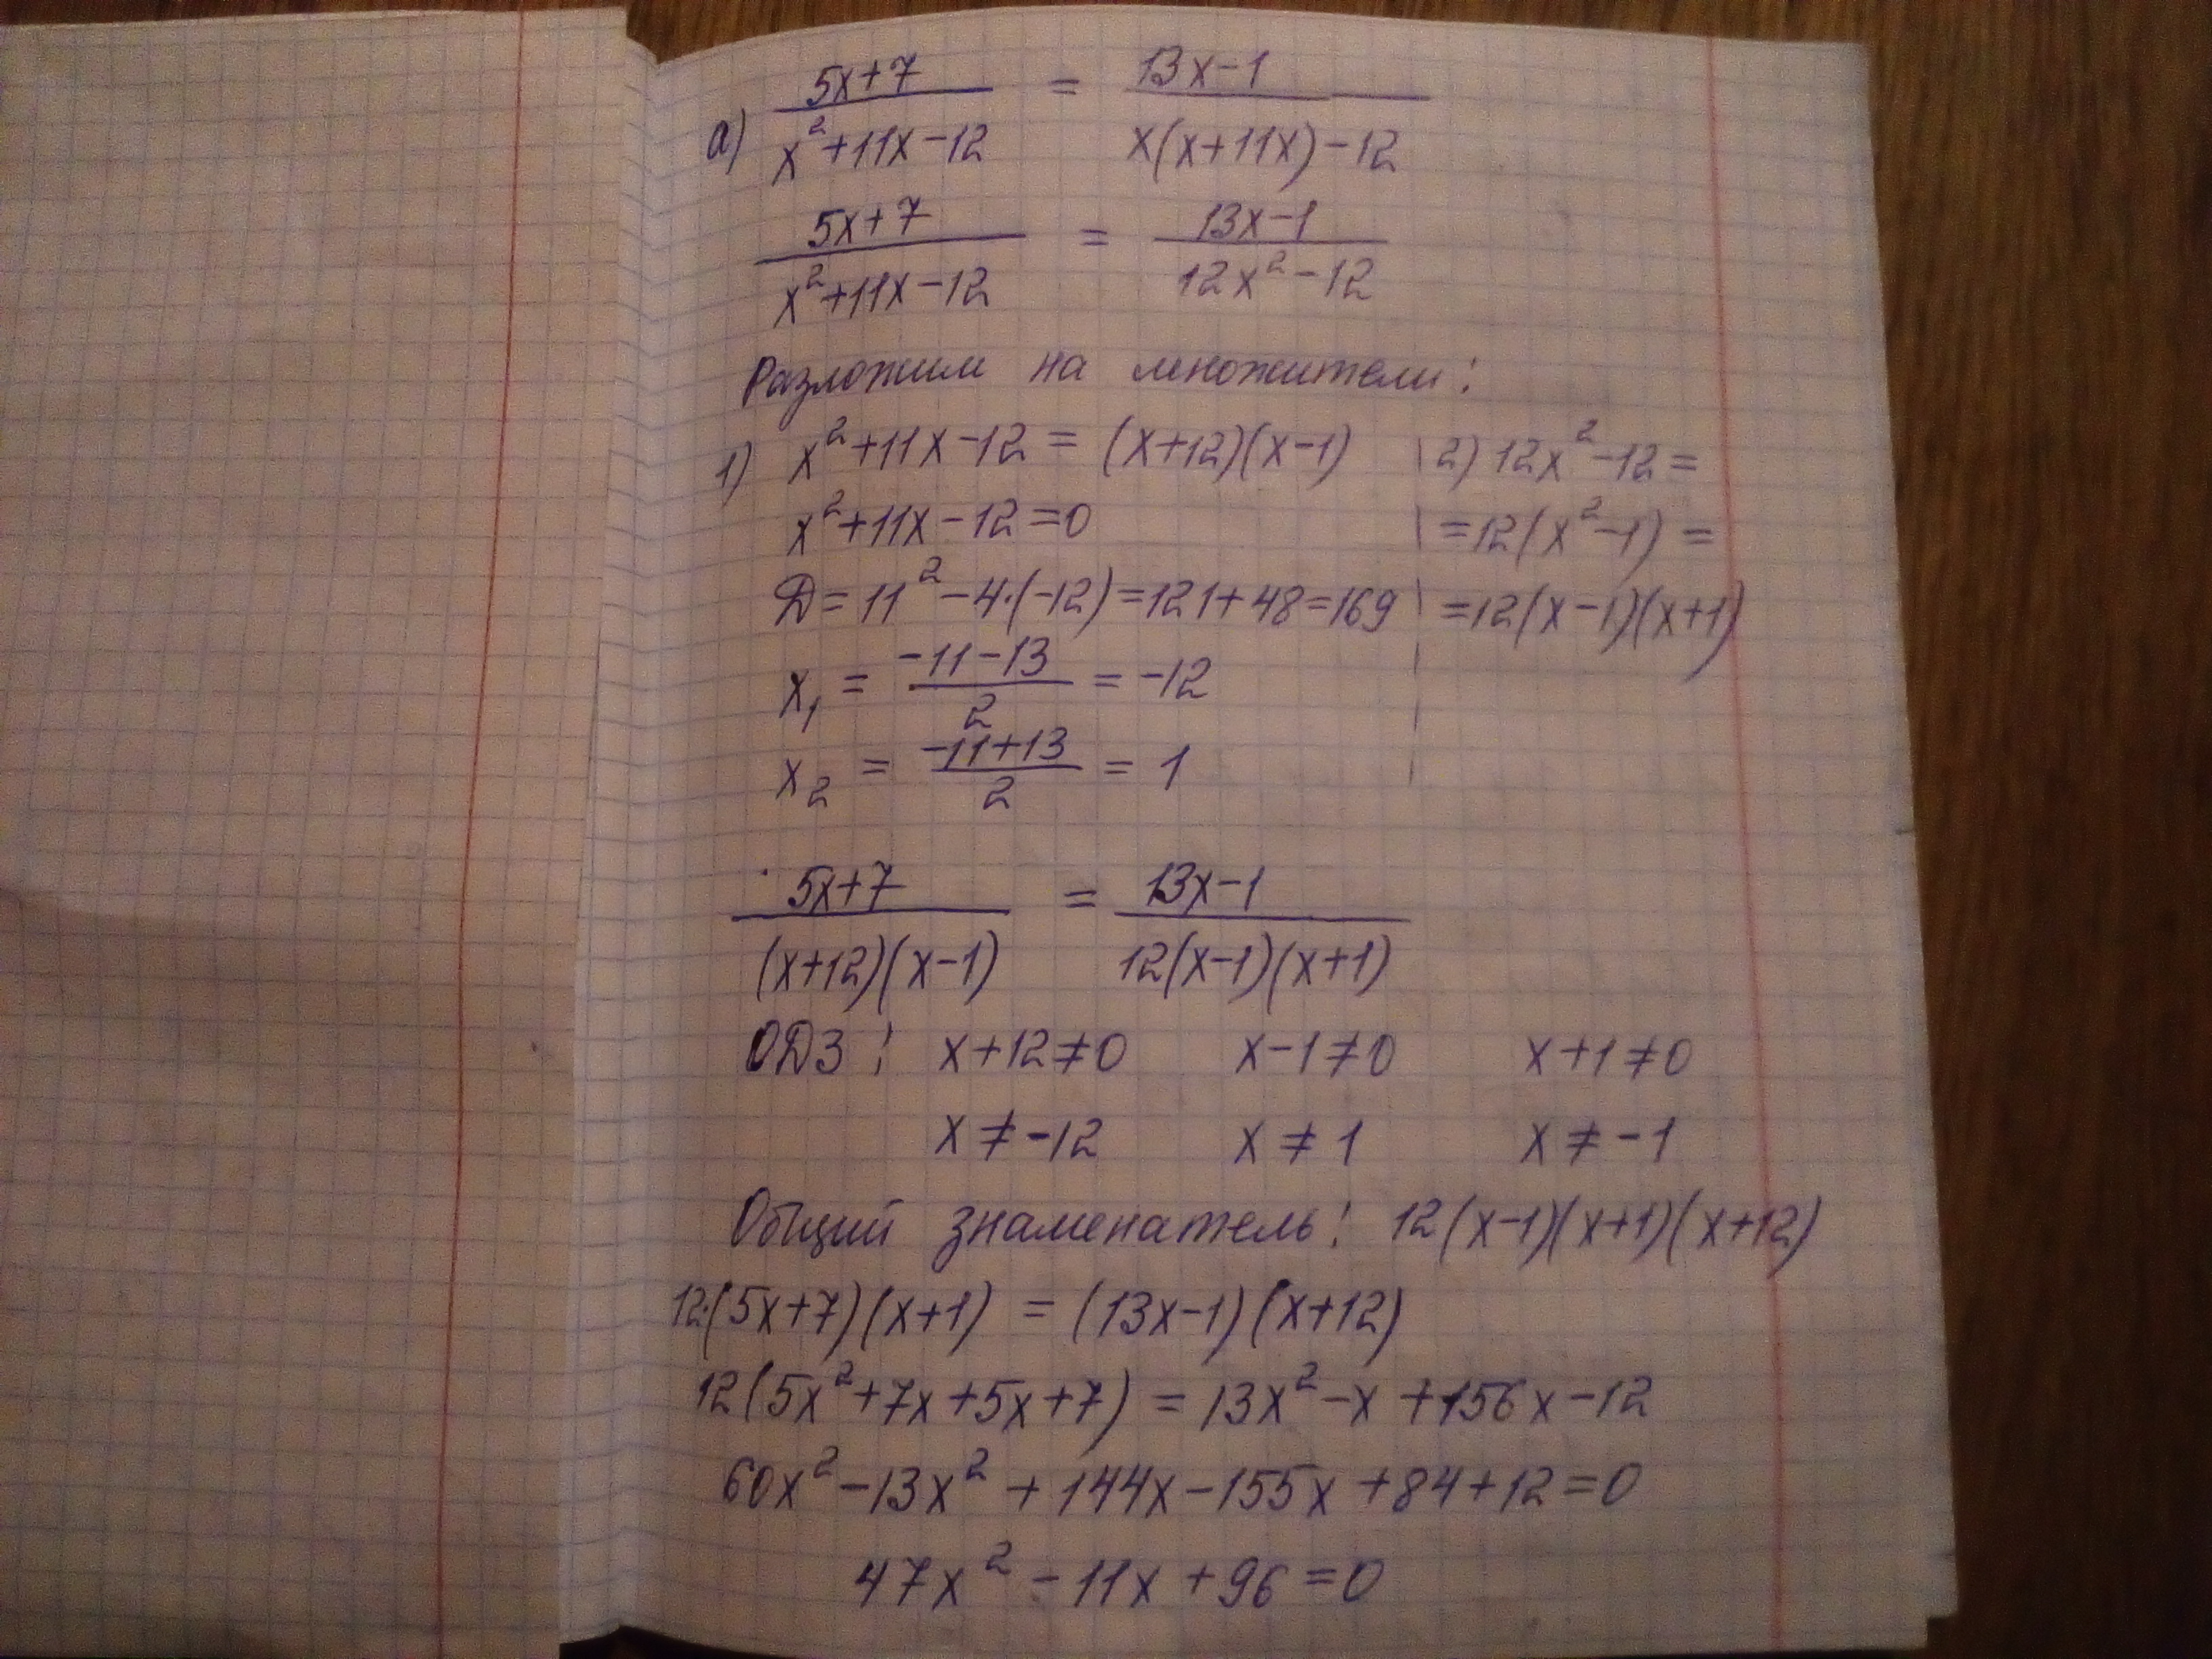 а) (5x+7)/(x²+11x-12) = (13x-1)/(x(x+11x)-12)
(5x+7)/(x²+11x-12) = (13x-1)/(12x²-12)
Разложим на множители:
1) x²+11x-12 = (x+12)(x-1)
x²+11x-12=0
Д=11²-4·(-12)=121+48=169
x₁ = (-11-13)/2 = -12
x₂ = (-11+13)/2 = 1
2) 12x²-12=
=12(x²-1)=
=12(x-1)(x+1)
(5x+7)/((x+12)(x-1)) = (13x-1)/(12(x-1)(x+1))
ОДЗ: x+12≠0 x-1≠0 x+1≠0
x≠-12 x≠1 x≠-1
Общий знаменатель: 12(x-1)(x+1)(x+12)
12·(5x+7)(x+1) = (13x-1)(x+12)
12(5x²+7x+5x+7) = 13x²-x+156x-12
60x²-13x²+144x-155x+84+12=0
47x²-11x+96=0